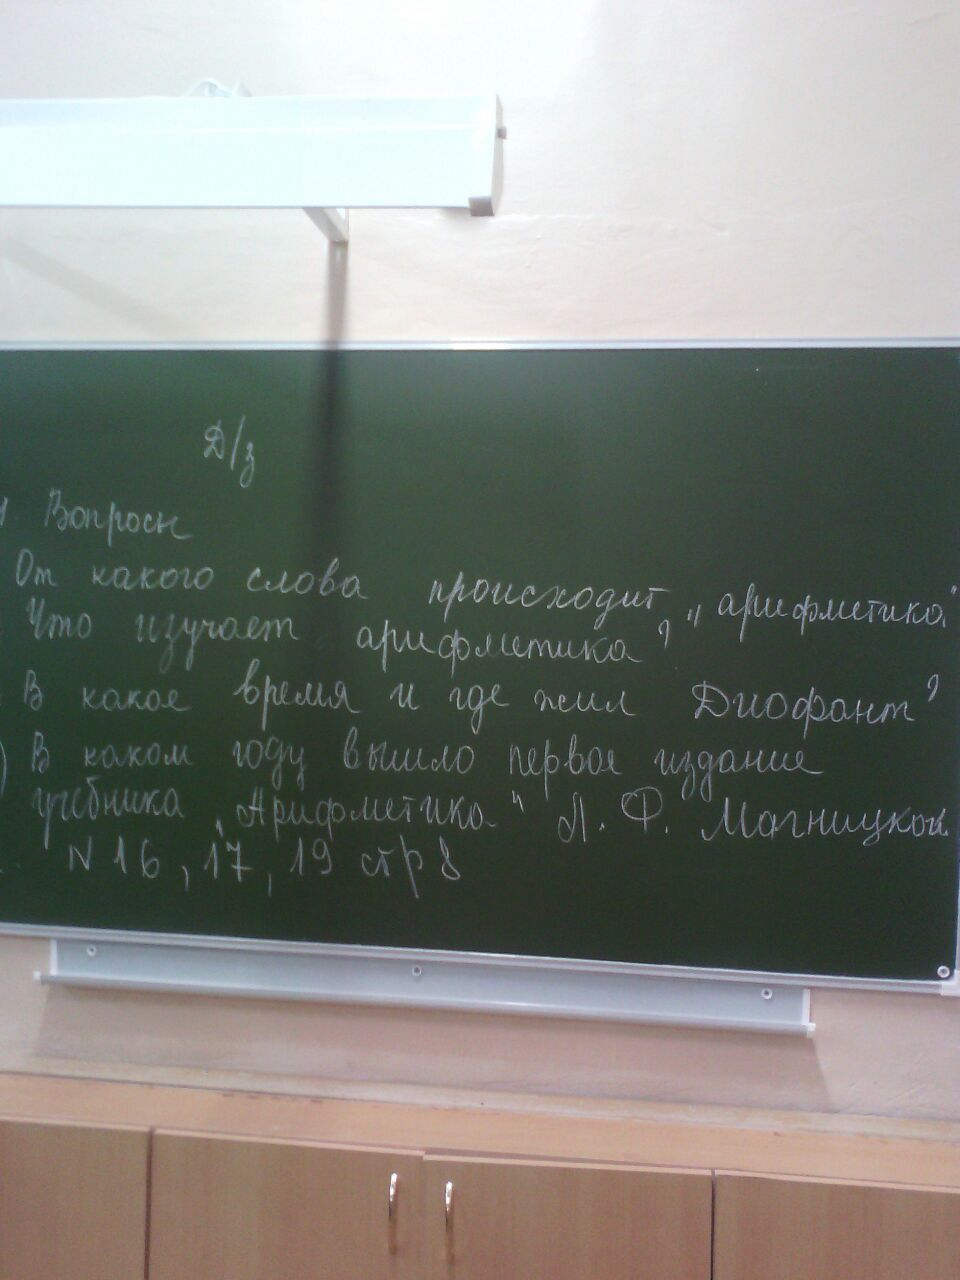 Д/з
1. Вопросы
От какого слова происходит „арифметика"
Что изучает арифметика?
В какое время и где жил Диофант?
) В каком году вышло первое издание
учебника „Арифметика" Л. Ф. Магницкой
N 16, 17, 19 стр 8